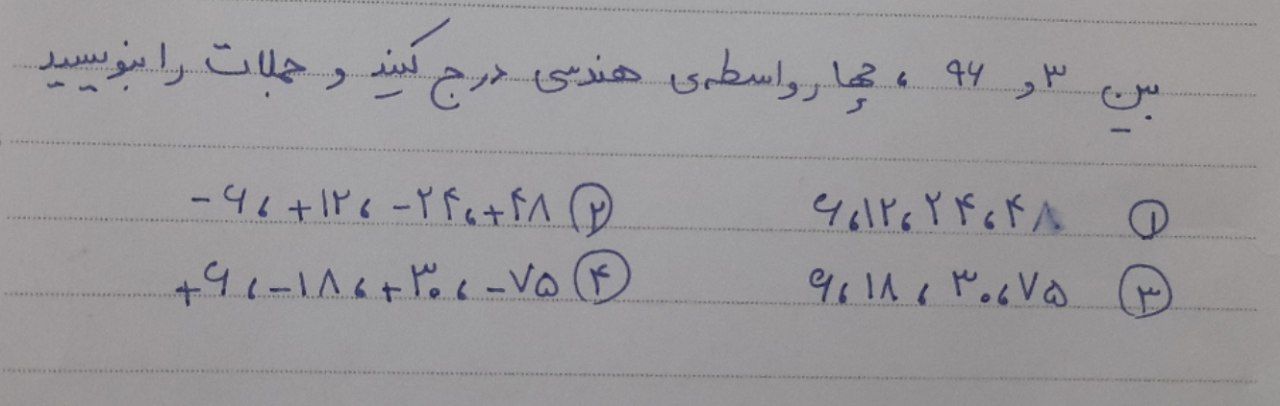 بین ۳ و ۹۶ ، چهار واسطه‌ی هندسی درج کنید و جملات را بنویسید
① ۶، ۱۲، ۲۴، ۴۸ ② -۶، +۱۲، -۲۴، +۴۸
③ ۶، ۱۸، ۳۰، ۷۵ ④ +۶، -۱۸، +۳۰، -۷۵